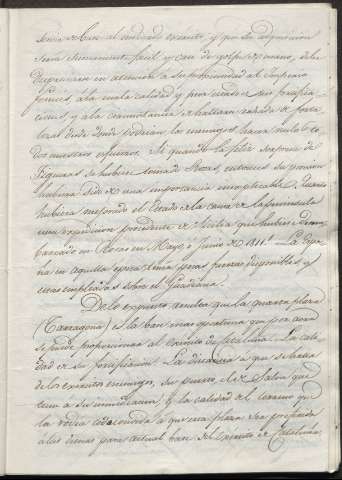 servir de base al indicado exercito, y por su adquisicion
seria sumamente facil y casi de golpe de mano, debe
despreciarse en atencion a su proximidad al Imperio
frances, a la mala calidad y poca masa de sus fortifica-
ciones, y a la circunstancia de hallarse rodeada de forta-
lezas desde donde podrian los enemigos hacer nulos to-
dos nuestros esfuerzos. Si quando la feliz sorpresa de
Figueras se hubiese tomado Rosas, entonces su posesion
hubiera sido de una importancia inexplicable. Quanto
hubiera mejorado el Estado de la causa de la peninsula
una expedicion procedente de Sicilia que hubiese desem-
barcado en Rosas en Mayo, o Junio de 1811. La Espa-
ña en aquella epoca tenia pocas fuerzas disponibles, y
estas empleadas sobre el Guadiana.
De lo expuesto resulta que la quarta plaza
(Tarragona) es la base mas oportuna que por ahora
se puede proporcionar al exercito de Cataluña. La cali-
dad de su fortificacion. La distancia a que se halla
de los exercitos enemigos, su puerto, el de Salou que
tiene a su inmediacion, y la calidad del terreno que
la rodea todo convida a que esta plaza sea preferida
a las demas para actual base del Exercito de Cataluña